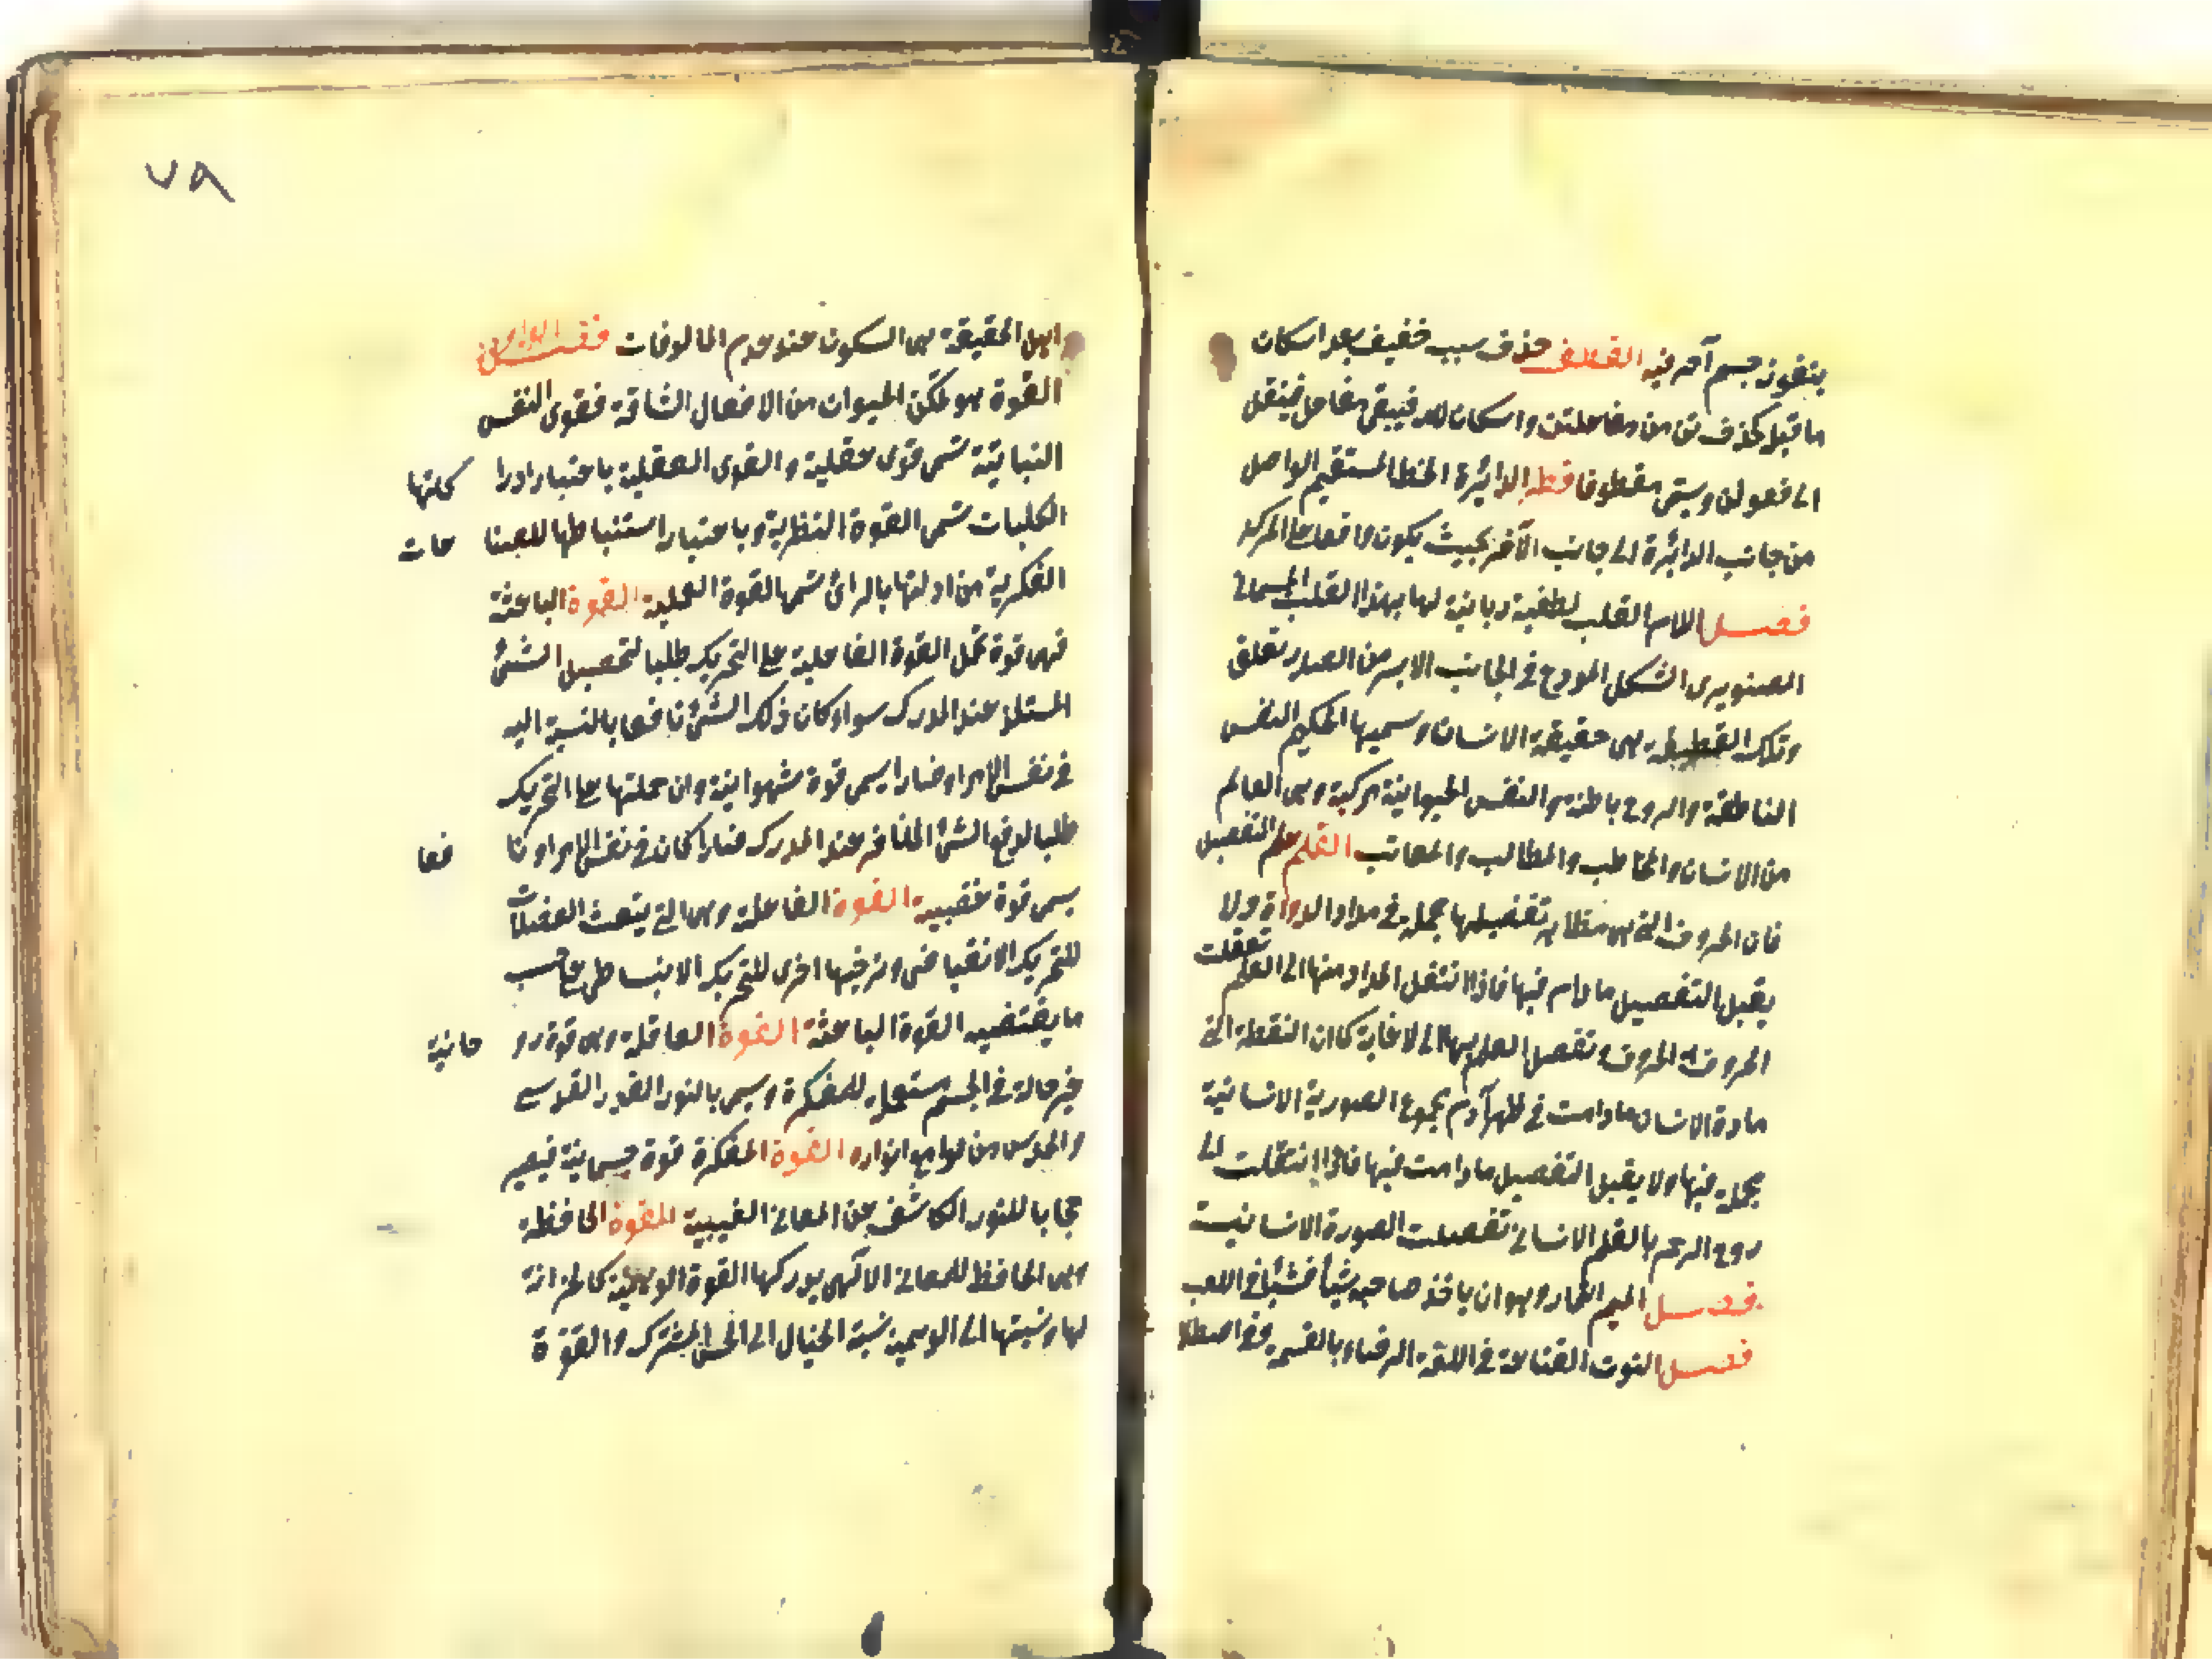 ينفوذ جسم آخر فيه القطف حذف سبب خفيف بعد اسكان
ما قبل كحذف تن من مفاعلتن واسكان لامه فيبقى مفاعل فينقل
الى فعولن ويسمى مقطوفا قطر الدائرة الخط المستقيم الواصل
من جانب الدائرة الى جانب الآخر بحيث يكون واقعا على المركز
فصل اللام القلب لطيفة ربانية لها بهذا القلب الجسمانى
الصنوبرى الشكل المودع فى الجانب الايسر من الصدر تعلق
وتلك هى حقيقة الانسان ويسميها الحكيم النفس
الناطقة والروح باطنه والنفس الحيوانية مركبة وهى العالم
من الانسان والمخاطب والمطالب والمعاتب القلم علم التفصيل
فان الحروف التى هى مظاهر تفصيلها مجملة فى مداد الدواة ولا
يقبل التفصيل ما دام فيها فاذا انتقل المداد منها الى القلم تفصلت
الحروف به الحروف وتفصل العلم بها الى لا غاية كما ان النقطة التى
مادة الانسان ما دامت فى ظهر آدم مجموع الصورية الانسانية
مجملة فيها ولا يقبل التفصيل ما دامت فيها فاذا انتقلت الى
روح الرحم بالقلم الانسانى تفصلت الصورة الانسانية
فصل الميم القمار وهو ان ياخذ صاحبه شيأ فشيئا فى اللعب
فصل النون القناعة فى اللغة الرضاء بالقسمة وفى اصطلا
٧٨
اهل الحقيقة هى السكون عند عدم المالوفات فصل الواو
القوة هو تمكن الحيوان من الافعال الشاقة فقوى النفس
النباتية تسمى قوى عقلية والقوى العقلية باعتبار ادرا كاتها
الكليات تسمى القوة النظرية وباعتبار استنباطها للصنا عات
الفكرية من ادلتها بالرائ تسمى القوة العملية القوة الباعثة
فهى قوة تحمل القوة الفاعلية على التحريك طلبا لتحصيل الشئ
المستلذ عند المدرك سواء كان ذلك الشئ نافعا بالنسبة اليه
فى نفس الامر او ضارا يسمى قوة شهوانية وان حملتها على التحريك
طلبا لدفع الشئ المنافر عند المدرك ضارا كان فى نفس الامر او نا فعا
يسمى قوة غضبية القوة الفاعلة وهى التى يبعث العضلات
للتحريك الانقباضى وترخيها اخرى للتحريك الانبساطى على حسب
ما يقتضيه القوة الباعثة القوة العاقلة وهى قوة رو حانية
غير حالة فى الجسم مستعملة للمفكرة ويسمى بالنور القدسى
والحدس من لوامع انواره القوة المفكرة قوة جسمانية فيصير
حجابا للنور الكاشف عن المعانى الغيبية القوة الحافظة
هى الحافظ للمعانى التى يدركها القوة الوهمية كالخزانة
لها ونسبتها الى الوهمية نسبة الخيال الى الحس المشترك والقوة